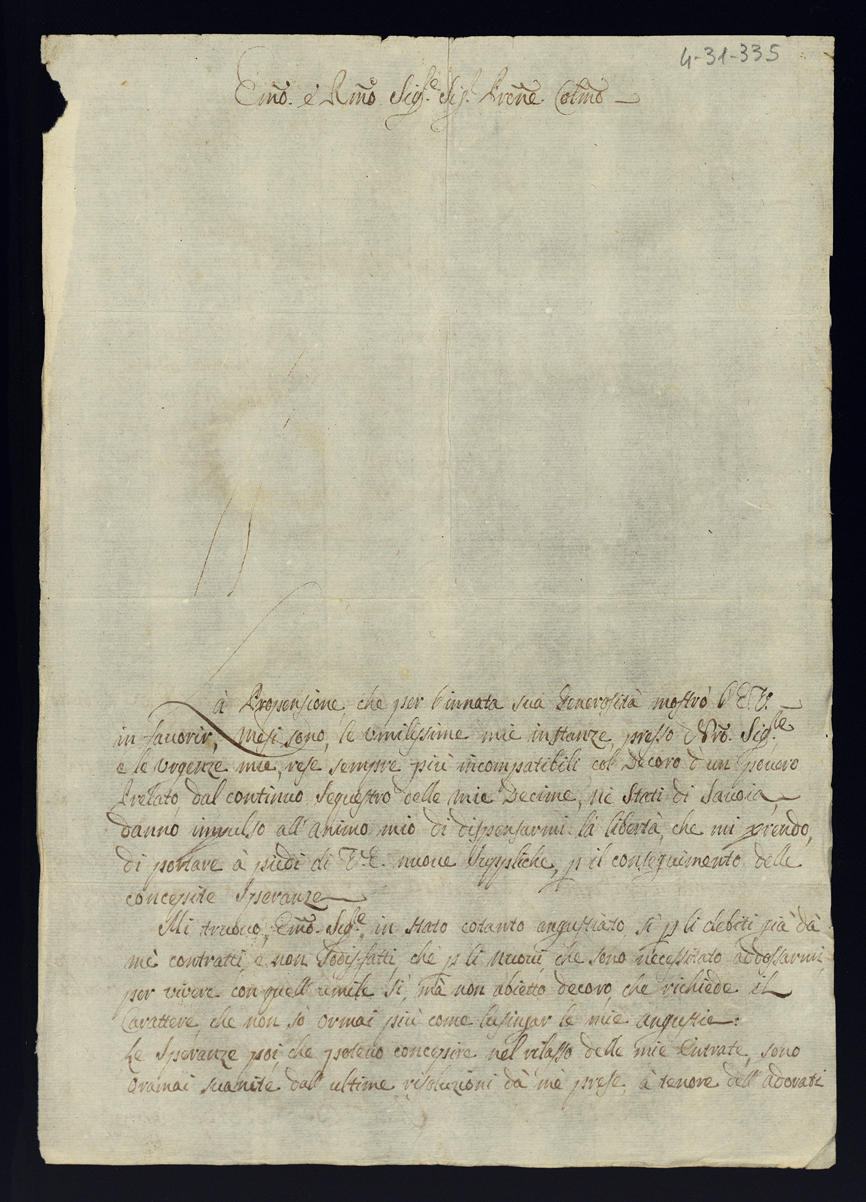 4-31-335
Emo. e Rmo Sigre. Sigr. Prone Colmo
La Propensione, che per l'innata sua Generosità mostrò l'E.V.
in favorir, Mesi sono, le Umilissime mie instanze, presso Nro. Sigre
e le Urgenze mie, rese sempre più incompatibili col Decoro d'un povero
Prelato, dal continuo Sequestro delle mie Decime, ne Stati di Savoia,
danno impulso all'animo mio di dispensarmi la libertà, che mi prendo,
di portare à piedi di V.E. nuove Suppliche, p il conseguimento delle
concepite Speranze
Mi truovo, Emo. Sigre, in stato cotanto angustiato, sì p li debiti già dà
mè contratti, e non Sodisfatti, che p li nuovi, che sono necessitato addossarmi,
per vivere con quell'umile sì, mà non abietto decoro, che richiede il
Carattere, che non sò ormai più come lusingar le mie angustie:
Le Speranze poi che potevo concepire nel rilasso delle mie Entrate, sono
oramai svanite dall'ultime risoluzioni dà mè prese, à tenore dell'adorati